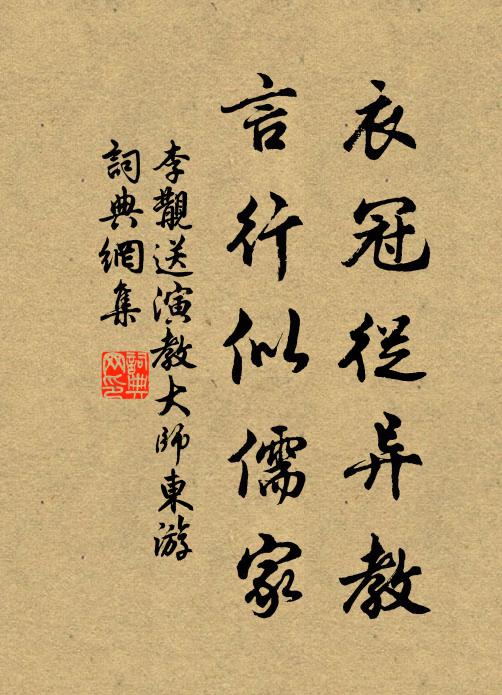 衣冠從异教
言行似儒家
李覯送演教大師東游
詞典網集
詞典网印